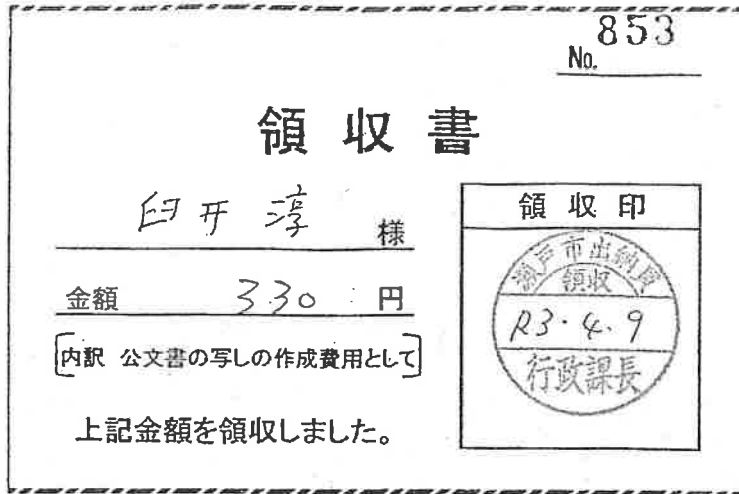 No. 853
領収書
臼井淳 様
金額 330 円
[内訳 公文書の写しの作成費用として]
上記金額を領収しました。
領収印
瀬戸市出納員
領収
R3・4・9
行政課長